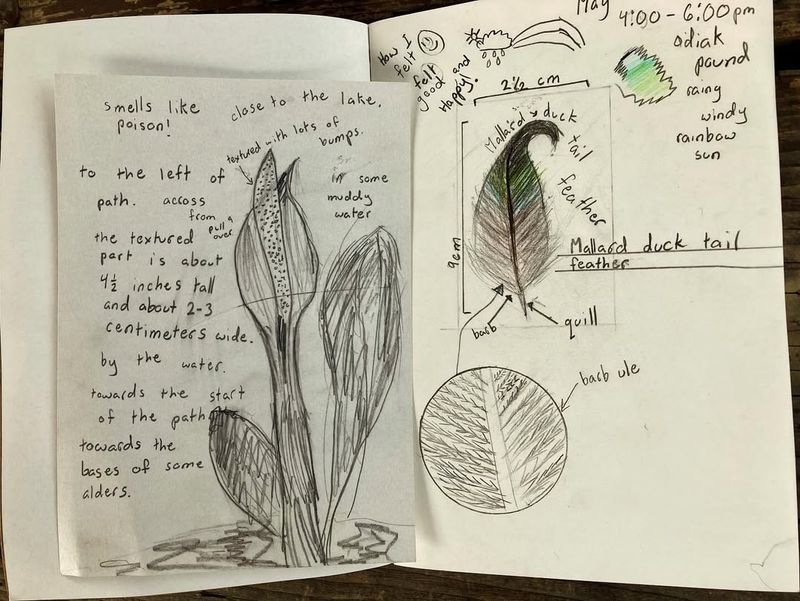 smells like
poison!
close to the lake.
textured with lots of
bumps.
to the left of
path. across
from pull a
over
in some
muddy
water
the textured
part is about
4½ inches tall
and about 2-3
centimeters wide.
by the water.
towards the start
of the path
towards the
bases of some
alders.
How I
felt
felt
good and
Happy!
May
4:00 - 6:00pm
odiak
pound
rainy
windy
rainbow
sun
2½ cm
9cm
Mallard duck
tail
feather
Mallard duck tail
feather
barb
quill
barb ule